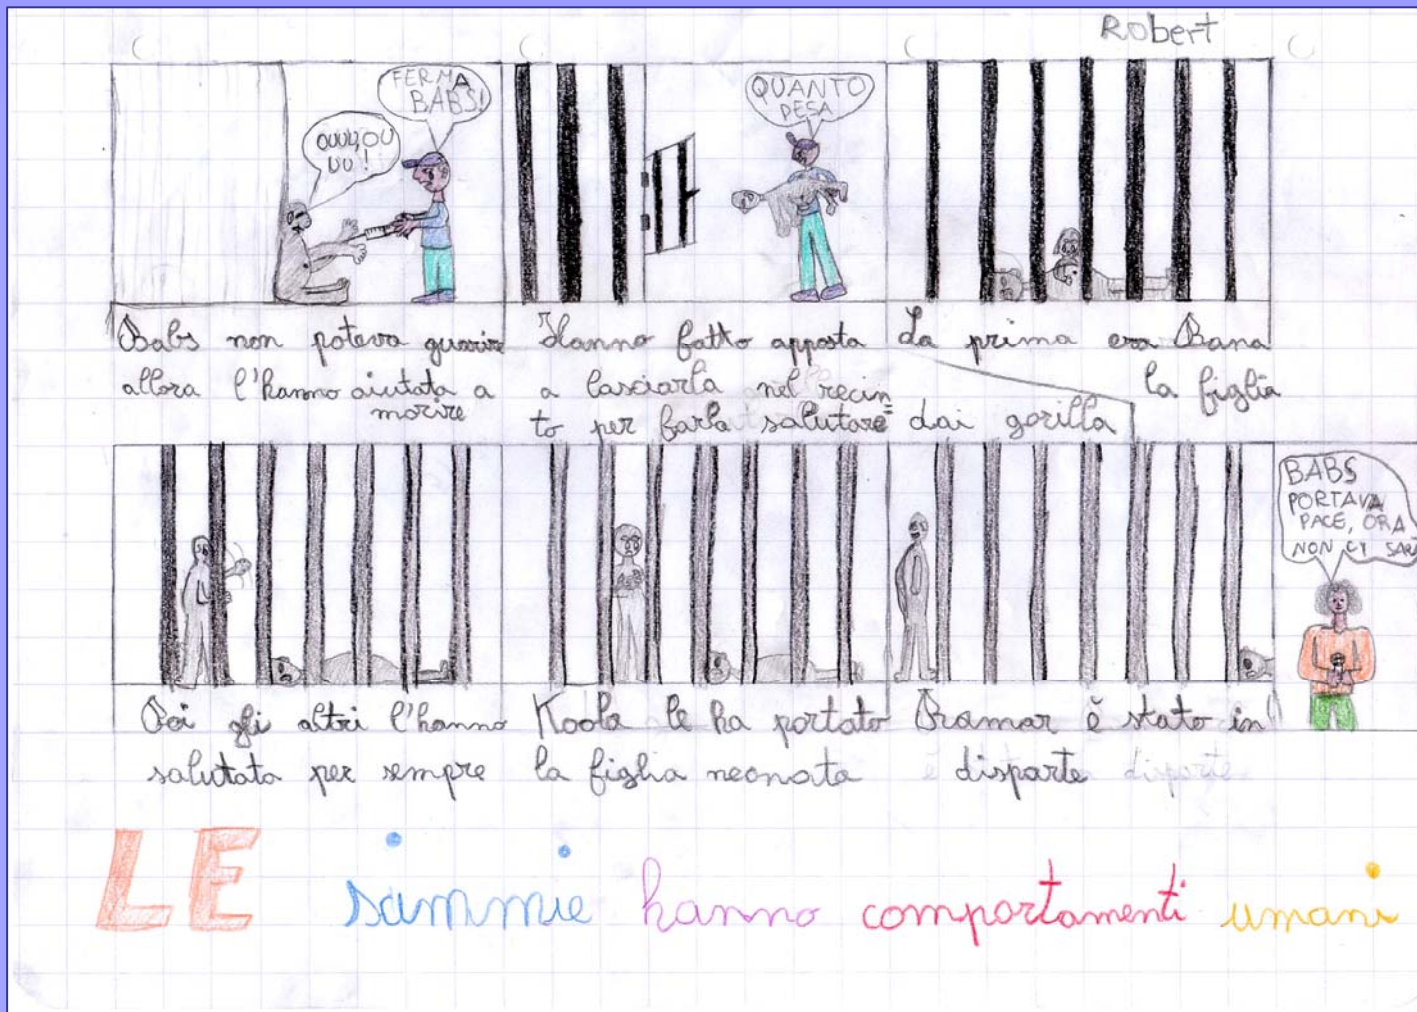 Robert
OUUU, OU
UU !
FERMA
BABS!
QUANTO
PESA
Babs non poteva guarire
allora l'hanno aiutata a
morire
Hanno fatto apposta
a lasciarla nel recin=
to per farla salutare dai gorilla
La prima era Bana
la figlia
BABS
PORTAVA
PACE, ORA
NON CI SARÀ
Poi gli altri l'hanno
salutata per sempre
Koola le ha portato
la figlia neonata
Ramar è stato in
disparte
LE simmie hanno comportamenti umani